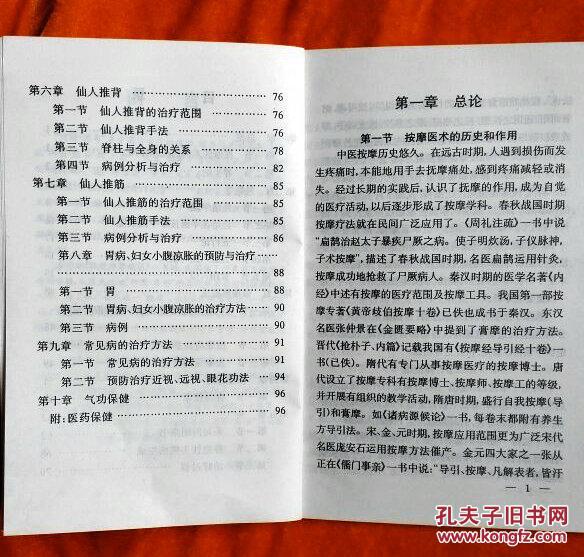 第六章 仙人推背 …………………… 76
第一节 仙人推背的治疗范围 ………… 76
第二节 仙人推背手法 ………………… 76
第三节 脊柱与全身的关系 …………… 78
第四节 病例分析与治疗 ……………… 82
第七章 仙人推筋 …………………… 85
第一节 仙人推筋的治疗范围 ………… 85
第二节 仙人推筋手法 ………………… 85
第三节 病例分析与治疗 ……………… 86
第八章 胃病、妇女小腹凉胀的预防与治疗 ……
…………………… 88
第一节 胃 …………………… 88
第二节 胃病、妇女小腹凉胀的治疗方法 … 90
第三节 病例 …………………… 90
第九章 常见病的治疗方法 …………… 91
第一节 常见病的治疗方法 …………… 91
第二节 预防治疗近视、远视、眼花功法 … 94
第十章 气功保健 …………………… 96
附:医药保健 …………………… 96
第一章 总论
第一节 按摩医术的历史和作用
中医按摩历史悠久。在远古时期,人遇到损伤而发
生疼痛时,本能地用手去抚摩痛处,感到疼痛减轻或消
失。经过长期的实践后,认识了抚摩的作用,成为自觉
的医疗活动,以后逐步形成了按摩学科。春秋战国时期
按摩疗法就在民间广泛应用了。《周礼注疏》一书中说
“扁鹊治赵太子暴疾尸厥之病。使子明炊汤,子仪脉神,
子术按摩”,描述了春秋战国时期,名医扁鹊运用针灸、
按摩成功地抢救了尸厥病人。秦汉时期的医学名著《内
经》中述有按摩的医疗范围及按摩工具。我国第一部按
摩专著《黄帝歧伯按摩十卷》已佚也成书于秦汉。东汉
名医张仲景在《金匮要略》中提到了膏摩的治疗方法。
晋代《抱朴子、内篇》记载我国有《按摩经导引经十卷》一
书(已佚)。隋代有专门从事按摩医疗的按摩博士。唐
代设立了按摩专科有按摩博士、按摩师、按摩工的等级,
并开展有组织的教学活动,隋唐时期,盛行自我按摩(导
引)和膏摩。如《诸病源候论》一书,每卷末都附有养生
方导引法。宋、金、元时期,按摩应用范围更为广泛宋代
名医庞安石运用按摩方法催产。金元四大家之一张从
正在《儒门事亲》一书中说:“导引、按摩、凡解表者,皆汗
— 1 —
孔夫子旧书网